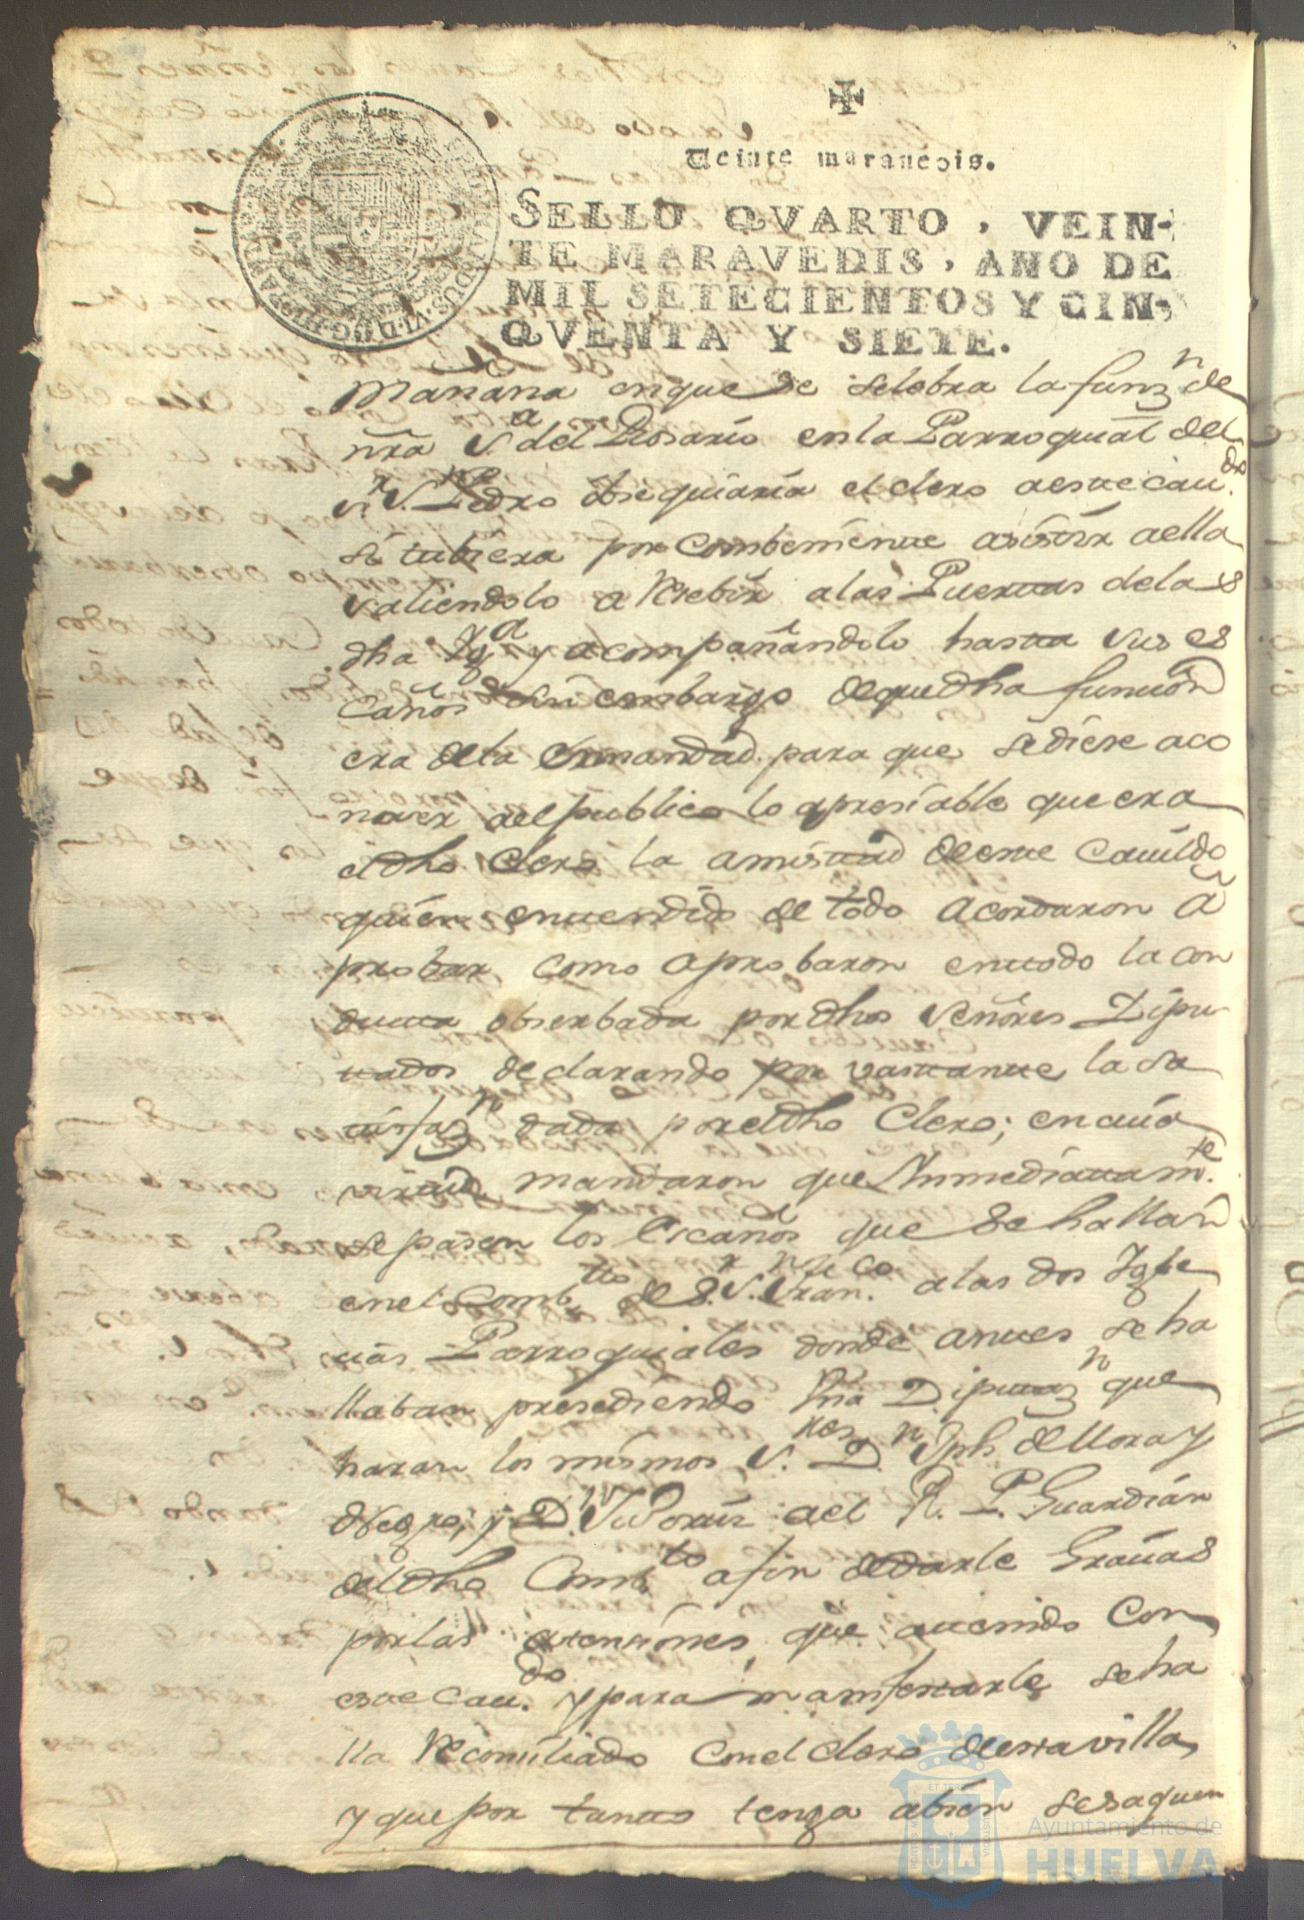 Veinte maravedis.
SELLO QVARTO, VEIN-
TE MARAVEDIS, AÑO DE
MIL SETECIENTOS Y CIN-
QVENTA Y SIETE.
Mañana en que se selebra la funz.n de
nrã S.a del Rosario en la Parroquial del
S.r S. Pedro obsequiaria el clero a este Cau.do
si tubiera por combeniente asistir a ella
saliendolo a Resebir a las Puertas de la
dha Yg.a y acompañandolo hasta sus es
caños sin embargo de que dha funcion
era de la Ermandad para que se diese a co
noser al publico lo apresiable que era
el dho Clero la amistad de este Cauildo
quien entendido de todo Acordaron A
probar, como aprobaron en todo la con
ducta obserbada por dhos Señores Dipu
tados declarando por vastante la sa
tisfaz.n dada por el dho Clero; en cuia
virtud mandaron que Inmediatam.te
se pasen los Escaños que se hallan
en el Comb.to de S.r S. Fran.co a las dos Ygle
cias Parroquiales donde antes se ha
llaban presediendo Vna Diputaz.n que
haran los mismos S.res D.n Jph. de Mora y
Negro; y D.n al R. P. Guardian
del dho Comb.to a fin de darle Gracias
por las atenciones que a tenido Con
este Cau.do y para manifestarle se ha
lla Reconciliado Con el Clero de esta villa
y que por tanto tenga a bien se saquen
Ayuntamiento de
HUELVA